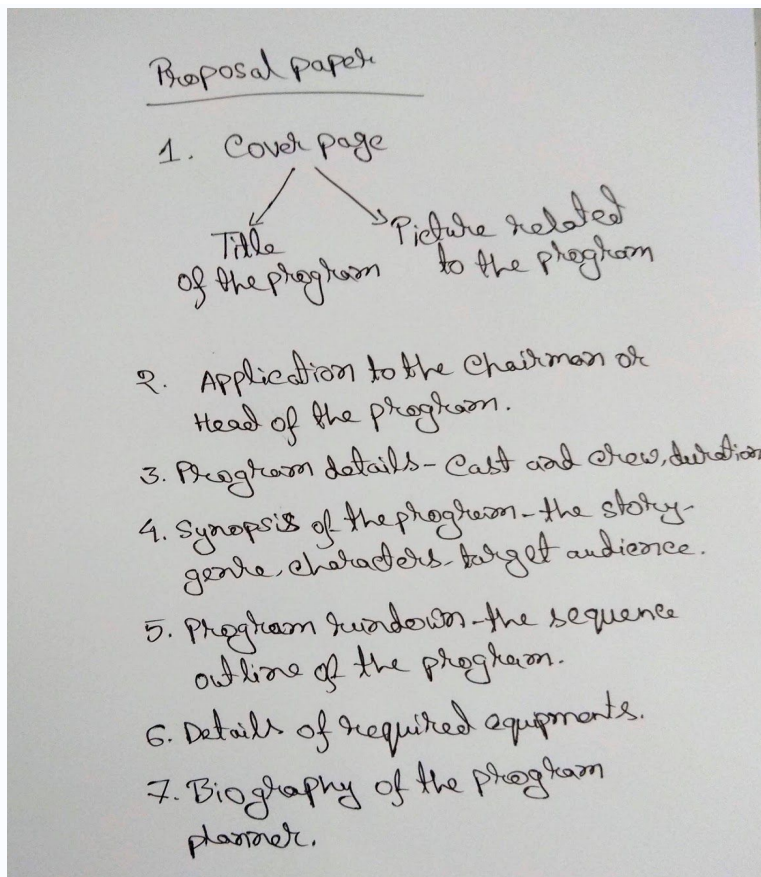 Proposal paper
1. Cover page
Title
of the program
Picture related
to the program
2. Application to the Chairman or
Head of the program.
3. Program details - Cast and crew, duration
4. Synopsis of the program - the story -
genre, characters - target audience.
5. Program rundown - the sequence
outline of the program.
6. Details of required equpments.
7. Biography of the program
planner.